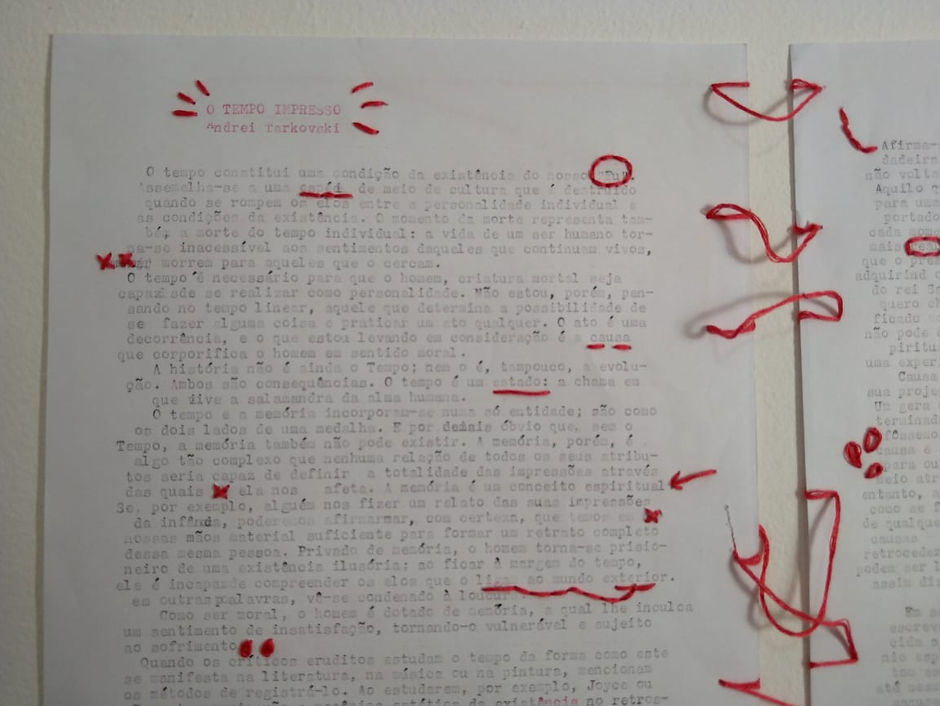 O TEMPO IMPRESSO
Andrei Tarkovski
O tempo constitui uma condição da existência do nosso "Eu".
Assemelha-se a uma espéci de meio de cultura que é destruido
quando se rompem os elos entre a personalidade individual e
as condições da existência. O momento da morte representa tam-
bém a morte do tempo individual: a vida de um ser humano tor-
na-se inacessível aos sentimentos daqueles que continuam vivos,
morrem para aqueles que o cercam.
O tempo é necessário para que o homem, criatura mortal seja
capaz de se realizar como personalidade. Não estou, porém, pen-
sando no tempo linear, aquele que determina a possibilidade de
se fazer alguma coisa e praticar um ato qualquer. O ato é uma
decorrência, e o que estou levando em consideração é a causa
que corporifica o homem em sentido moral.
A história não é ainda o Tempo; nem o é, tampouco, a evolu-
ção. Ambos são consequências. O tempo é um estado: a chama em
que vive a salamandra da alma humana.
O tempo e a memória incorporam-se numa só entidade; são como
os dois lados de uma medalha. E por demais óbvio que, sem o
Tempo, a memória também não pode existir. A memória, porém, é
algo tão complexo que nenhuma relação de todos os seus atribu-
tos seria capaz de definir a totalidade das impressões através
das quais ela nos afeta. A memória é um conceito espiritual
Se, por exemplo, alguém nos fizer um relato das suas impressões
da infância, poderemos afirmarmar, com certeza, que temos em
nossas mãos material suficiente para formar um retrato completo
dessa mesma pessoa. Privado de memória, o homem torna-se prisio-
neiro de uma existência ilusória; ao ficar à margem do tempo,
ele é incapazde compreender os elos que o liga ao mundo exterior.
em outras palavras, vê-se condenado à loucura
Como ser moral, o homem é dotado de memória, a qual lhe inculca
um sentimento de insatisfação, tornando-o vulnerável e sujeito
ao sofrimento
Quando os críticos eruditos estudam o tempo da forma como este
se manifesta na literatura, na música ou na pintura, mencionam
os métodos de registrá-lo. Ao estudarem, por exemplo, Joyce ou
existência no retros-
Afirma-
dadeira
não volta
Aquilo q
para uma
portado
cada
mais
que o pre
adquirind
do rei
quero
ficado
não pode
piritu
uma exper
Causa
sua proje
Um gera
terminad
causa e
para ou
meio atr
entanto, a
como se
de qualque
causas
retroceder
podem ser
assim di
Em
escrev
cida a
não esp